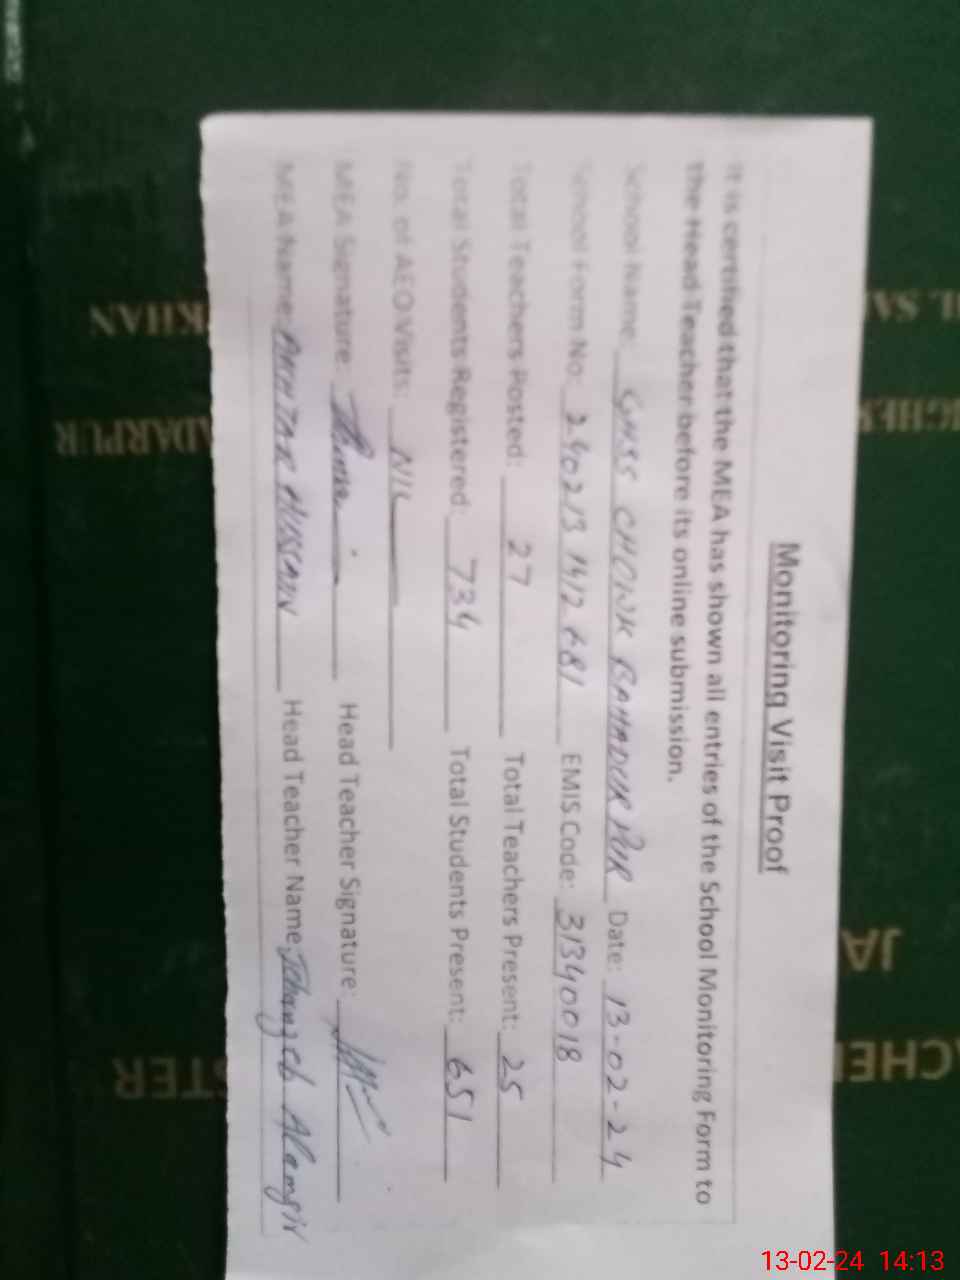 Monitoring Visit Proof
It is certified that the MEA has shown all entries of the School Monitoring Form to
the Head Teacher before its online submission.
School Name: GHSS CHOWK BAHADUR PUR Date: 13-02-24
School Form No: 240213 1412 681 EMIS Code: 31340018
Total Teachers Posted: 27 Total Teachers Present: 25
Total Students Registered: 734 Total Students Present: 651
No. of AEO Visits: NIL
MEA Signature: Head Teacher Signature:
MEA Name: AKHTAR HUSSAIN Head Teacher Name: Jehanzeb Alamgir
KHAN
ADARPUR
JA
STER
13-02-24 14:13